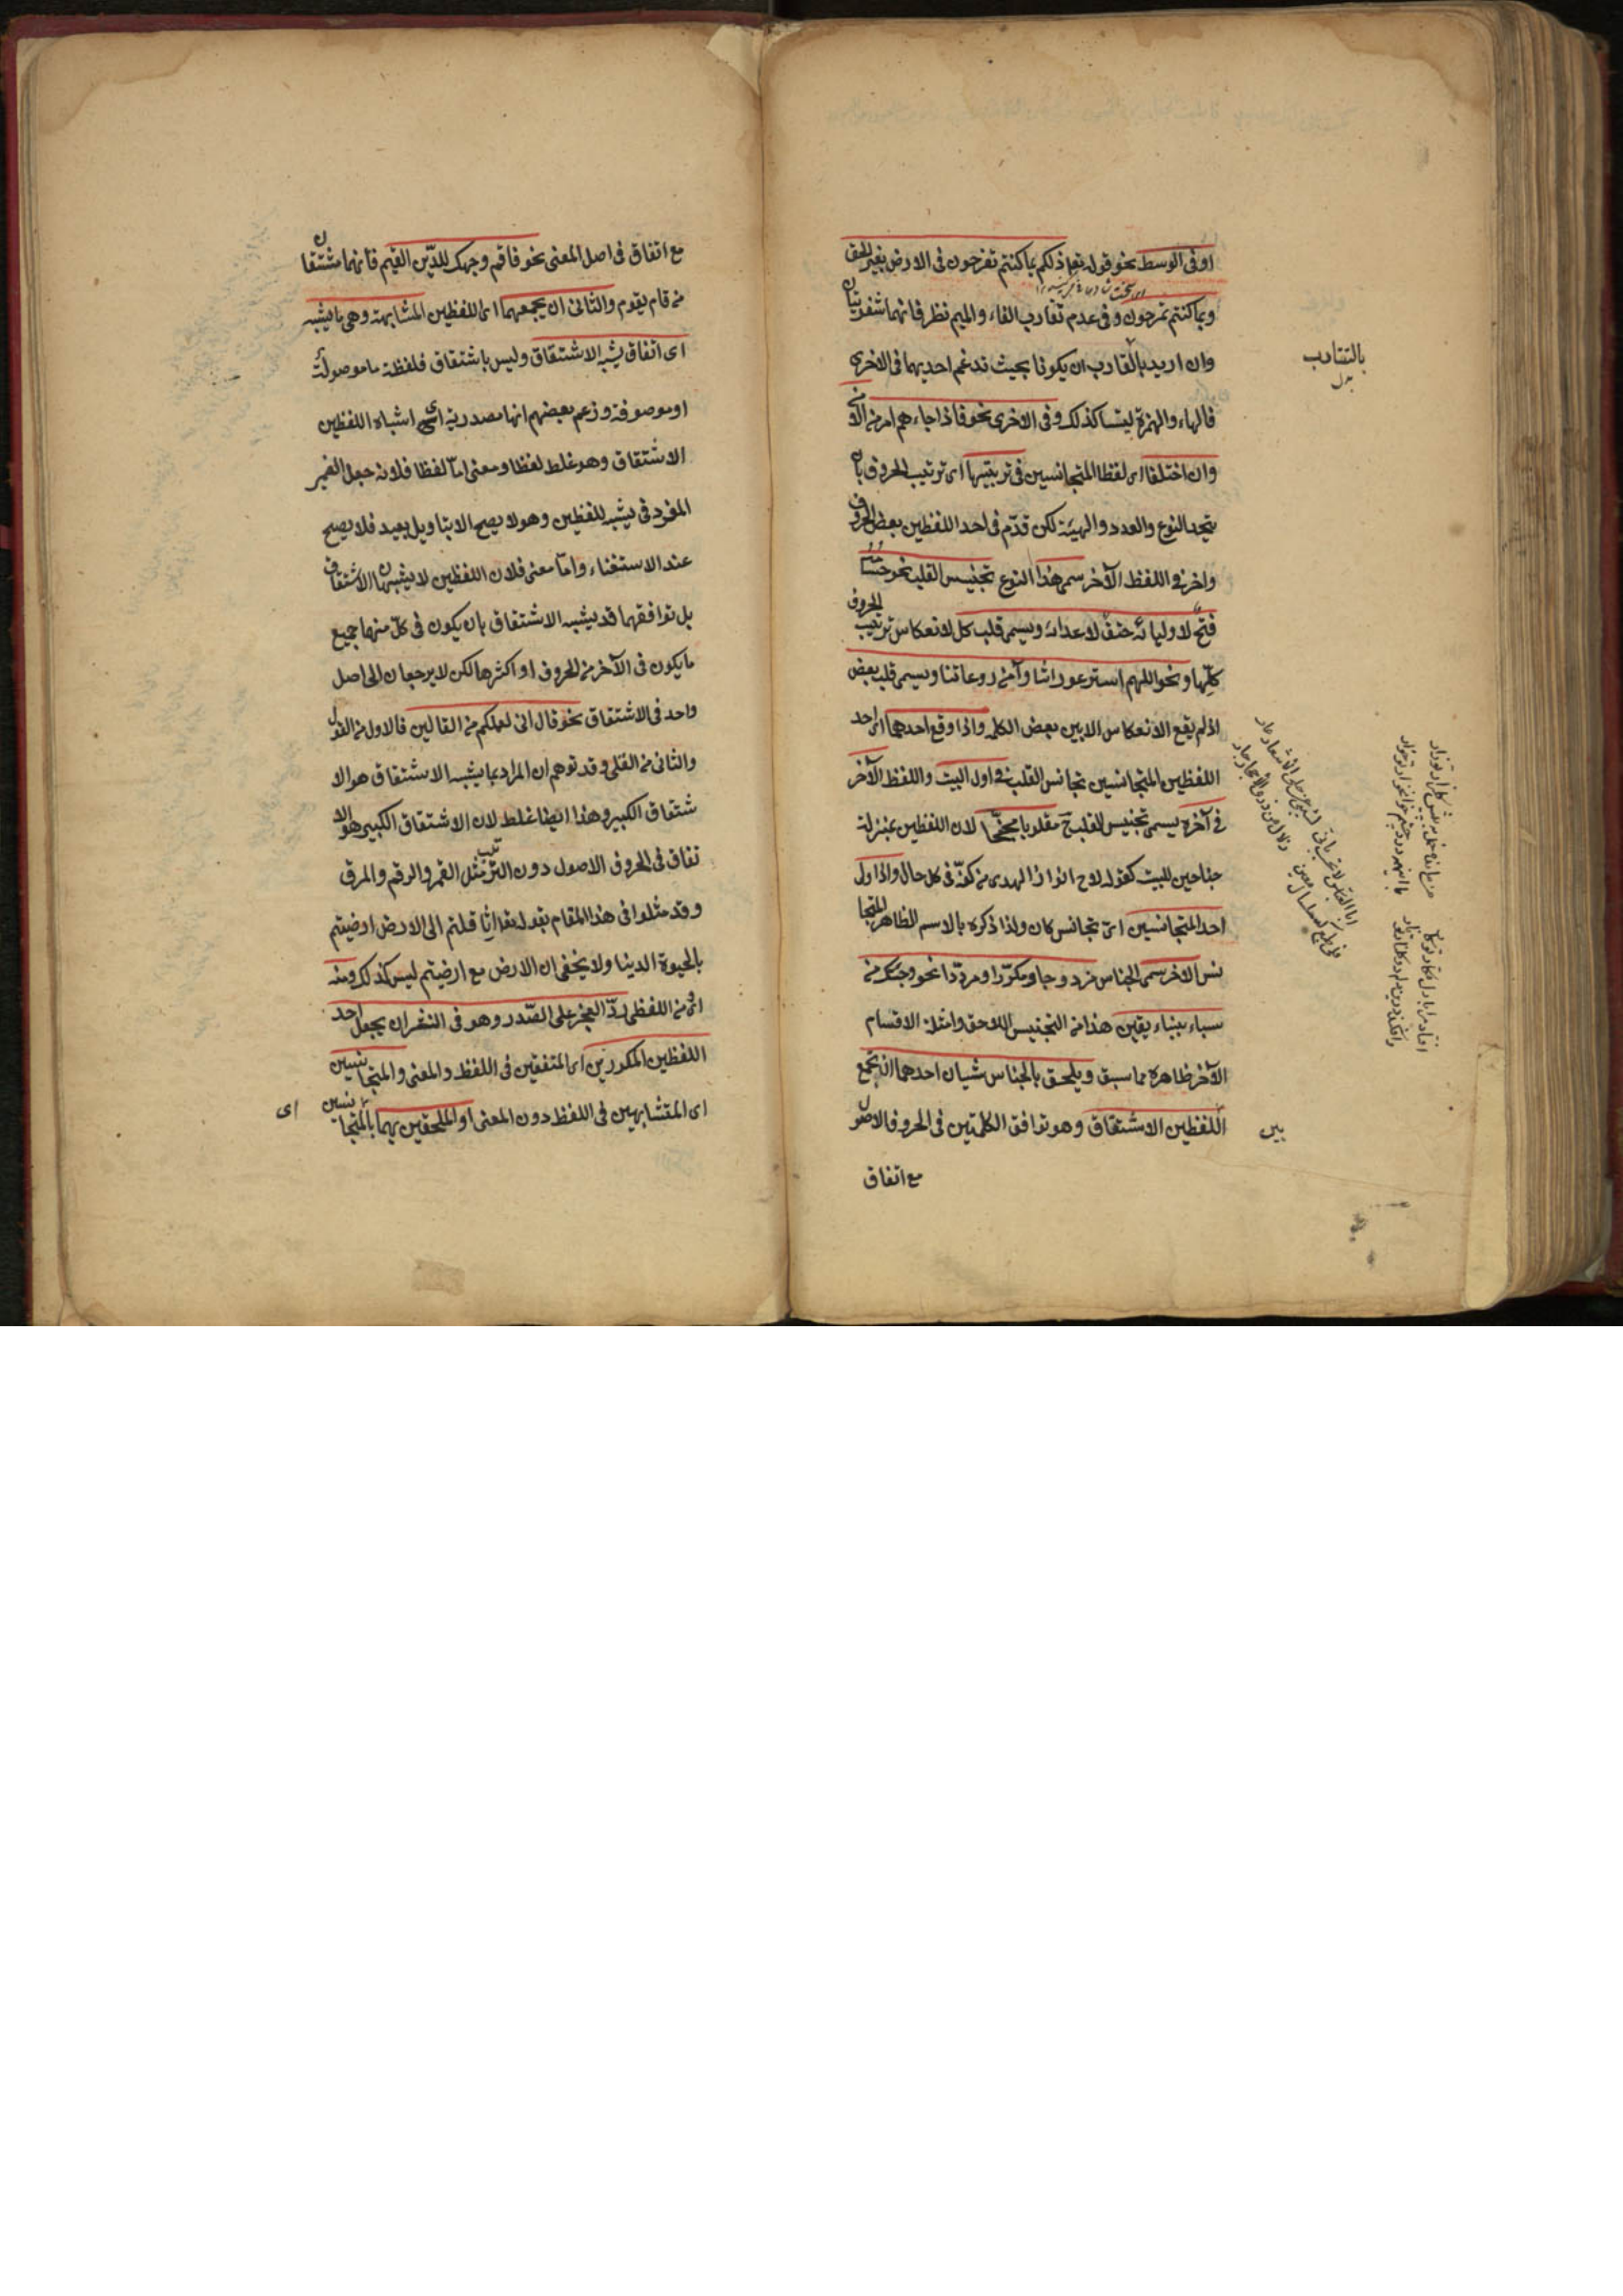 او فى الوسط نحو قوله تعا ذلكم بما كنتم تفرحون فى الارض بغير الحق
وبما كنتم تمرحون وفى عدم تقارب الفاء والميم نظر فانهما شفويتان
وان اريد بالتقارب ان يكونا بحيث تدغم احديهما فى الاخرى
فالهاء والهمزة ليستا كذلك وفى الاخرى نحو فاذا جاءهم امر من الامن
وان اختلفا اى لفظا المتجانسين فى ترتيبها اى ترتيب الحروف بان
يتحد النوع والعدد والهيئة لكن قدّم فى احد اللفظين بعض الحروف
واخر فى اللفظ الآخر سمى هذا النوع تجنيس القلب نحو حسامه
فتح لاوليائه حتف لاعدائه ويسمى قلب كل لانعكاس ترتيب الحروف
كلّها ونحو اللهم استر عوراتنا وآمن روعاتنا ويسمى قلب بعض
اذ لم يقع الانعكاس الا بين بعض الكلمة واذا وقع احدهما اى احد
اللفظين المتجانسين تجانس القلب فى اول البيت واللفظ الآخر
فى آخره يسمى تجنيس القلب ح مقلوبا مجنّحا لان اللفظين بمنزلة
جناحين للبيت كقوله لاح انوار الهدى من كفّه فى كل حال واذا ولى
احد المتجانسين اى تجانس كان ولذا ذكره بالاسم الظاهر المتجا
نس الآخر سمى الجناس مزدوجا ومكرّرا ومردّدا نحو وجئتك من
سباء بنباء يقين هذا من التجنيس اللاحق وامثلة الاقسام
الآخر ظاهرة مما سبق ويلحق بالجناس شيئان احدهما ان يجمع
اللفظين الاشتقاق وهو توافق الكلمتين فى الحروف الاصول
مع اتفاق
بالتقارب
بين
مع اتفاق فى اصل المعنى نحو فاقم وجهك للدّين القيم فانهما مشتقان
من قام يقوم والثانى ان يجمعهما اى اللفظين المشابهة وهى ما يشبه
اى اتفاق يشبه الاشتقاق وليس باشتقاق فلفظة ما موصولة
او موصوفة وزعم بعضهم انها مصدرية اى اشباه اللفظين
الاشتقاق وهو غلط لفظا ومعنى امّا لفظا فلانه جعل الضمير
المفرد فى يشبه للفظين وهو لا يصح الا بتاويل بعيد فلا يصح
عند الاستغناء وامّا معنى فلان اللفظين لا يشبهان الاشتقاق
بل توافقهما قد يشبه الاشتقاق بان يكون فى كلّ منهما جميع
ما يكون فى الآخر من الحروف او اكثرها لكن لا يرجعان الى اصل
واحد فى الاشتقاق نحو قال انى لعملكم من القالين فالاول من القول
والثانى من القلى وقد توهم ان المراد بما يشبه الاشتقاق هو الا
شتقاق الكبير وهذا ايضا غلط لان الاشتقاق الكبير هو الا
تفاق فى الحروف الاصول دون الترتيب مثل القمر والرقم والمرق
وقد مثلوا فى هذا المقام بقوله تعا اثاقلتم الى الارض ارضيتم
بالحيوة الدنيا ولا يخفى ان الارض مع ارضيتم ليس كذلك ومنه
اى من اللفظى ردّ العجز على الصّدر وهو فى النثر ان يجعل احد
اللفظين المكررين اى المتفقين فى اللفظ والمعنى والمتجانسين
اى المتشابهين فى اللفظ دون المعنى او الملحقين بهما بالمتجانسين
اى